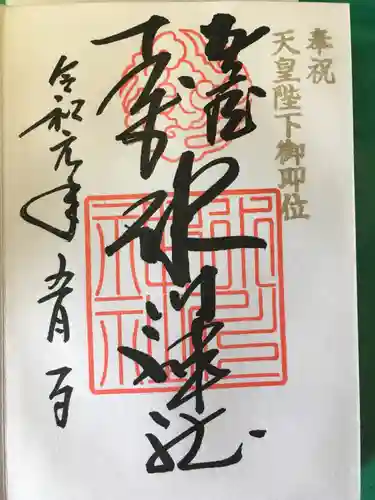 奉祝
天皇陛下御即位
氷川神社
令和元年五月一日